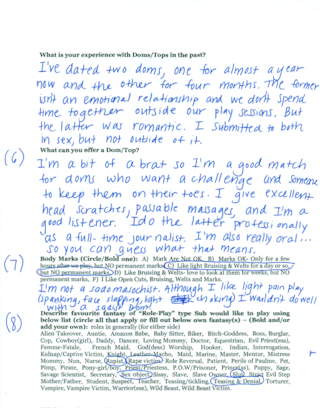 What is your experience with Doms/Tops in the past?
I've dated two doms, one for almost a year
now and the other for four months. The former
isn't an emotional relationship and we don't spend
time together outside our play sessions. But
the latter was romantic. I submitted to both
in sex, but not outside of it.
(6) What can you offer a Dom/Top?
I'm a bit of a brat so I'm a good match
for doms who want a challenge and someone
to keep them on their toes. I give excellent
head scratches, passable massages, and I'm a
good listener. I do the latter professionally
as a full-time journalist. I'm also really oral...
so you can guess what that means.
(7) Body Marks (Circle/Bold one): A) Mark Are Not OK. B) Marks OK- Only for a few
hours after we play, but NO permanent marks. C) Like light Bruising & Welts for a day or so,
but NO permanent marks. D) Like Bruising & Welts- love to look at them for weeks, but NO
permanent marks. F) I Like Open Cuts, Bruising, Welts and Marks.
I'm not a sadomasochist. Although I like light pain play
(spanking, face slapping, light choking) I wouldn't do well
with a sadist
(8) Describe favourite fantasy of "Role-Play" type Sub would like to play using
below list (circle all that apply or fill out below own fantasy(s) – (Bold and/or
add your own): roles in generally (for either side)
Alien Takeover, Auntie, Amazon Babe, Baby Sitter, Biker, Bitch-Goddess, Boss, Burglar,
Cop, Cowboy(girl), Daddy, Dancer, Loving Mommy, Doctor, Equestrian, Evil Priest(ess),
Femme-Fatale, French Maid, God(dess) Worship, Hooker, Indian, Interrogation,
Kidnap/Captive Victim, Knight, Leather-Macho, Maid, Marine, Master, Mentor, Mistress
Mommy, Nun, Nurse, Rapist/Rape victim/ Role Reversal, Patient, Perils of Pauline, Pet,
Pimp, Pirate, Pony-girl/boy, Priest/Priestess, P.O.W/Prisoner, Prince(ss), Puppy, Sage,
Savage Scientist, Secretary, Sex object, Sissy, Slave, Slave Owner, Slut, Strict Evil Step
Mother/Father, Student, Suspect, Teacher, Teasing/tickling, Teasing & Denial, Torturer,
Vampire, Vampire Victim, Warrior(ess), Wild Beast, Wild Beast Victim.